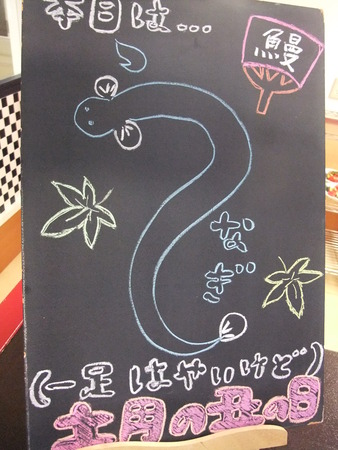 本日は…
鰻
うなぎ
(一足はやいけど)
土用の丑の日